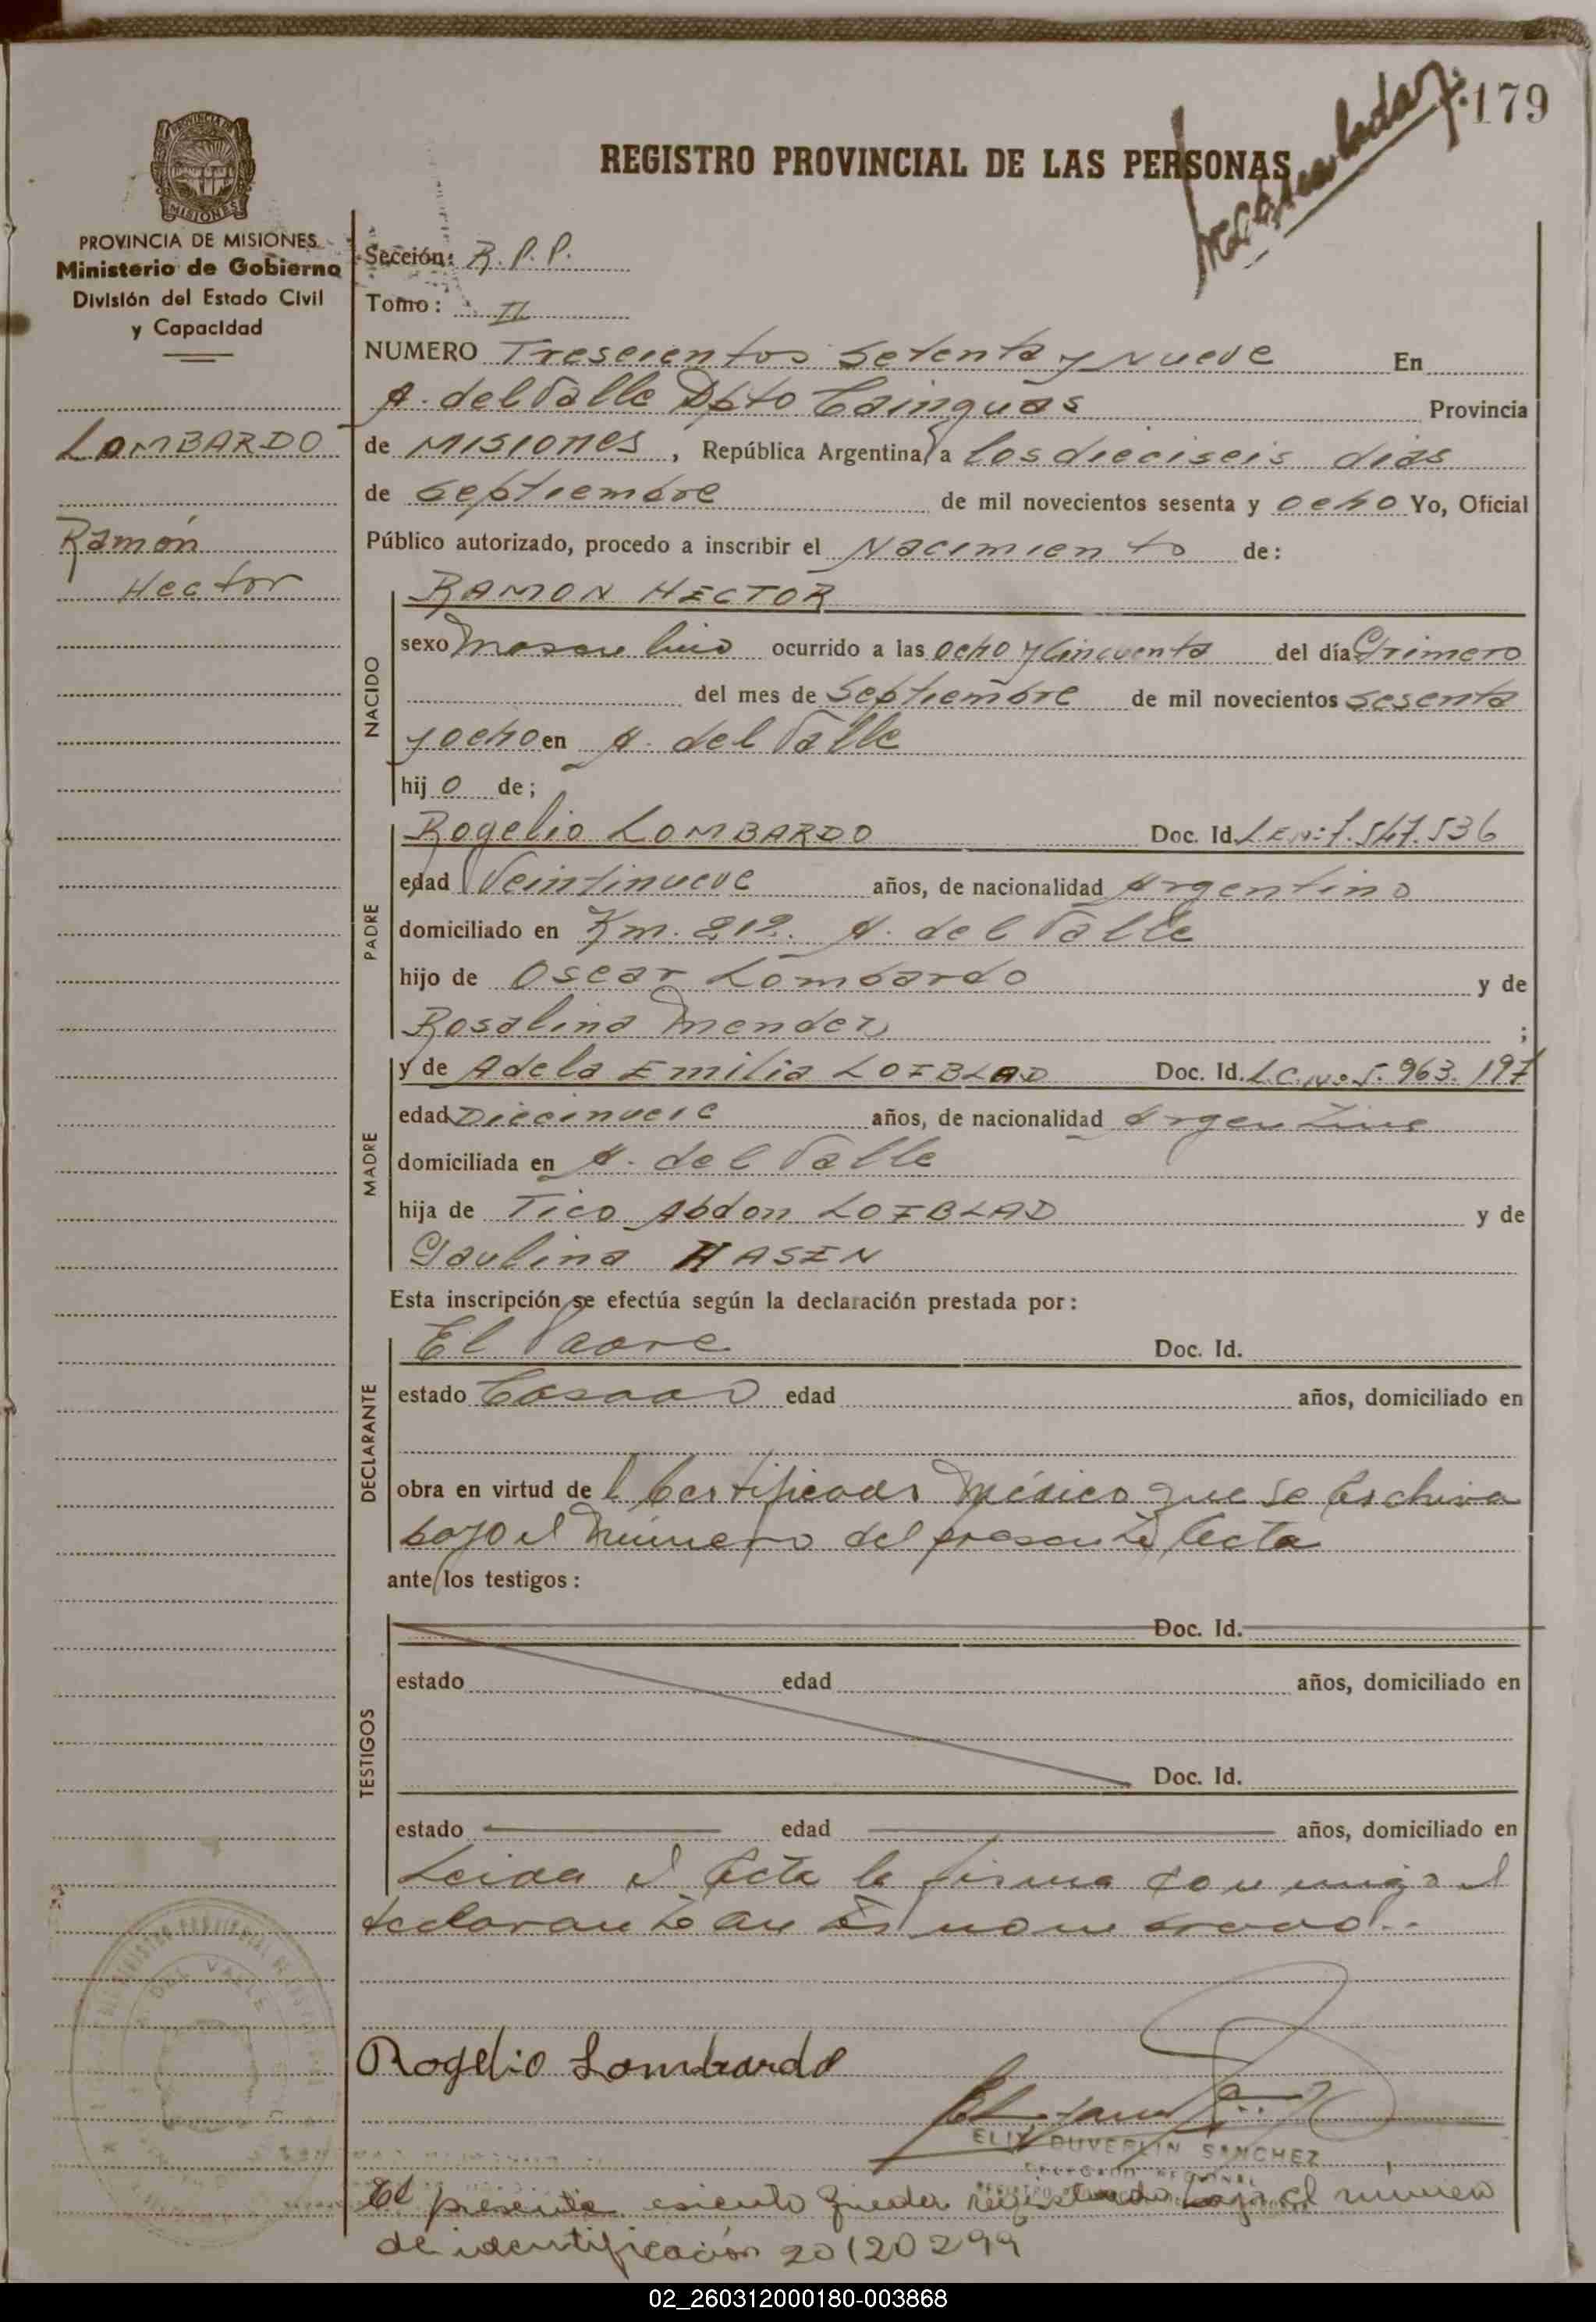 179
Matriculado
REGISTRO PROVINCIAL DE LAS PERSONAS
MISIONES
PROVINCIA DE MISIONES
Ministerio de Gobierno
División del Estado Civil
y Capacidad
LOMBARDO
Ramón
Hector
Sección: R. P. P.
Tomo: II
NUMERO Trescientos Setenta y Nueve En
A. del Valle Dpto Cainguas Provincia
de MISIONES, República Argentina, a los dieciseis dias
de Septiembre de mil novecientos sesenta y ocho Yo, Oficial
Público autorizado, procedo a inscribir el Nacimiento de:
NACIDO
RAMON HECTOR
sexo Masculino ocurrido a las ocho y Cincuenta del día Primero
del mes de Septiembre de mil novecientos sesenta
y ocho en A. del Valle
hijo de;
PADRE
Rogelio LOMBARDO Doc. Id. L.E.Nº 7.547.536
edad Veintinueve años, de nacionalidad Argentino
domiciliado en Km. 212. A. del Valle
hijo de Oscar Lombardo y de
Rosalina Mendez ;
MADRE
y de Adela Emilia LOFBLAD Doc. Id. L.C.Nº 5.963.197
edad Diecinueve años, de nacionalidad Argentina
domiciliada en A. del Valle
hija de Tico Abdon LOFBLAD y de
Paulina HASEN
Esta inscripción se efectúa según la declaración prestada por:
DECLARANTE
El Padre Doc. Id.
estado Casado edad años, domiciliado en
obra en virtud del Certificado Médico que se Archiva
bajo el Número del presente Acta
ante los testigos:
TESTIGOS
Doc. Id.
estado edad años, domiciliado en
Doc. Id.
estado edad años, domiciliado en
Leida el Acta la firma conmigo el
declarante antes nombrado.
DEL VALLE
Rogelio Lombardo
ELIX DUVERLIN SANCHEZ
El presente asiento queda registrado bajo el numero
de identificación 20120299
02_260312000180-003868